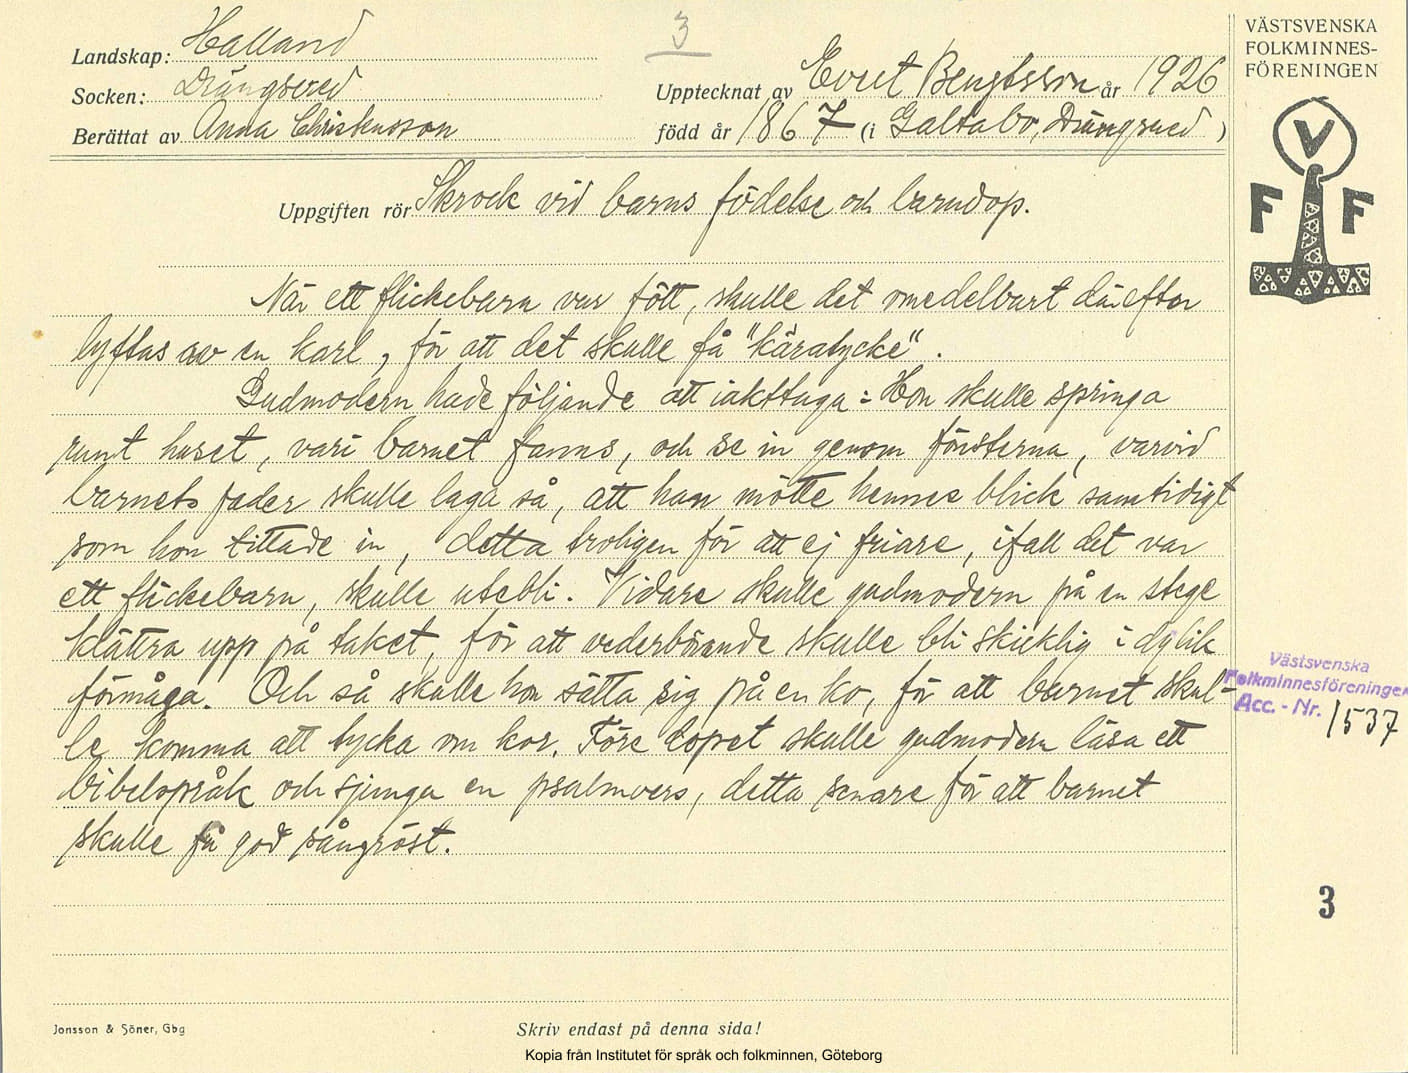 3
Landskap: Halland
Socken: Drängsered
Berättat av Anna Christensson
Upptecknat av Evert Bengtsson år 1926
född år 1867 (i Galtabo, Drängsered )
Uppgiften rör Skrock vid barns födelse och barndop.
När ett flickebarn var fött, skulle det omedelbart därefter
lyftas av en karl, för att det skulle få "käratycke".
Gudmodern hade följande att iakttaga: Hon skulle springa
runt huset, vari barnet fanns, och se in genom fönsterna, varvid
barnets fader skulle laga så, att han mötte hennes blick samtidigt
som hon tittade in, detta troligen för att ej friare, ifall det var
ett flickebarn, skulle utebli. Vidare skulle gudmodern på en stege
klättra upp på taket, för att vederbörande skulle bli skicklig i dylik
förmåga. Och så skulle hon sätta sig på en ko, för att barnet skul-
le komma att tycka om kor. Före dopet skulle gudmodern läsa ett
bibelspråk och sjunga en psalmvers, detta senare för att barnet
skulle få god sångröst.
VÄSTSVENSKA
FOLKMINNES-
FÖRENINGEN
V
F F
Västsvenska
Folkminnesföreningen
Acc. - Nr. 1537
3
Jonsson & Söner, Gbg
Skriv endast på denna sida!
Kopia från Institutet för språk och folkminnen, Göteborg